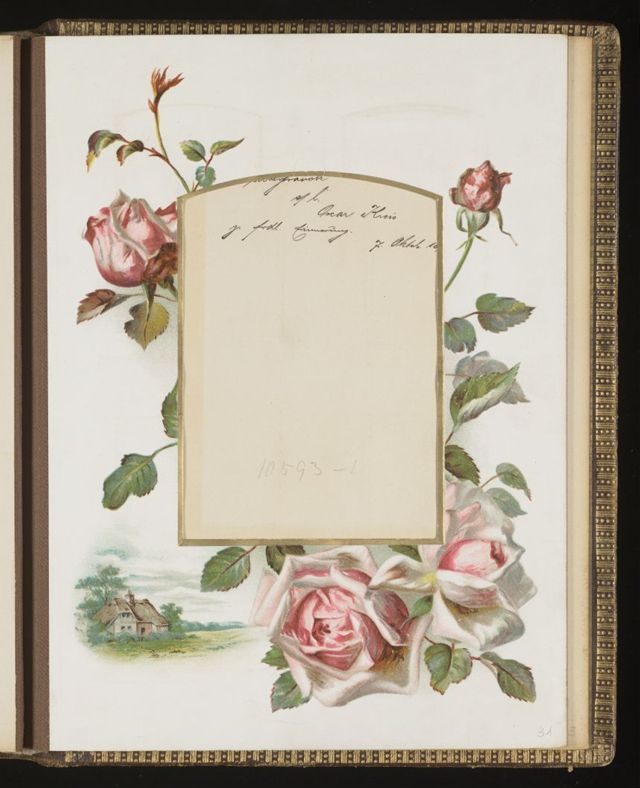 s/l.
Oscar
z. frdl. Erinnerung.
7. Oktob.
10593-1
31